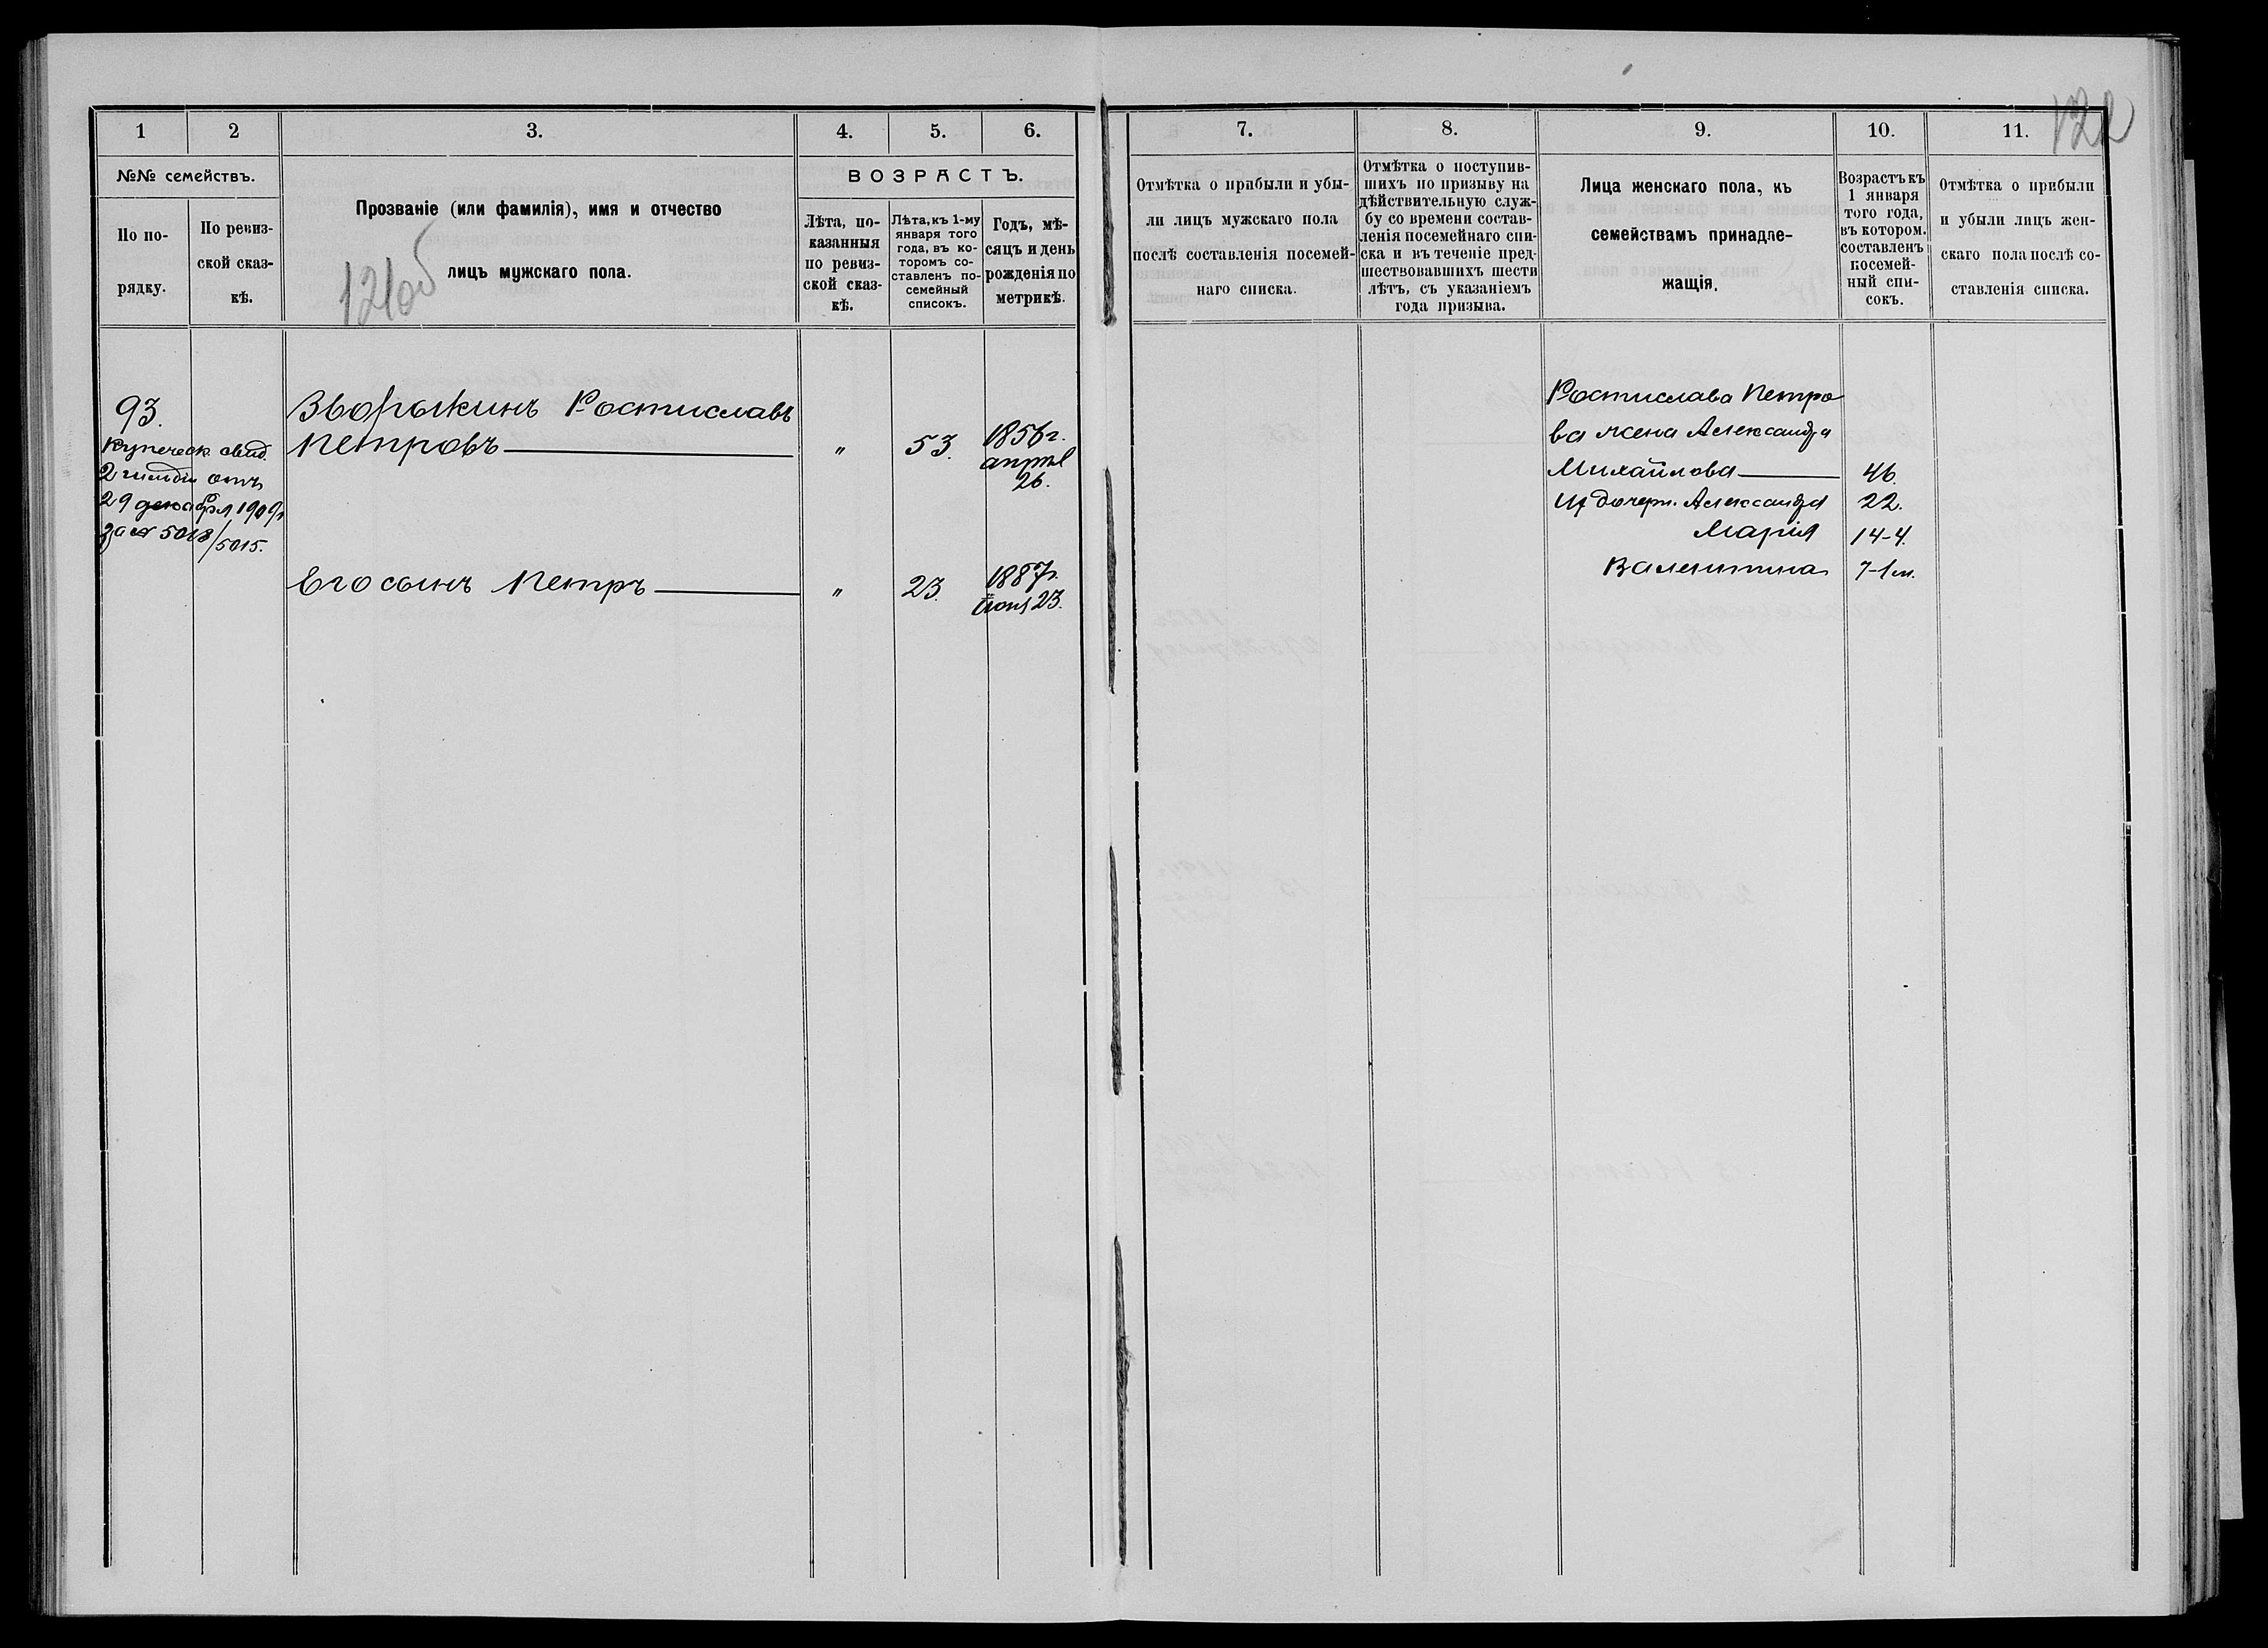 122
1
2
3.
4.
5.
6.
№№ семействъ.
По по-
рядку.
По ревиз-
ской сказ-
кѣ.
Прозваніе (или фамилія), имя и отчество
лицъ мужскаго пола.
121об
ВОЗРАСТЪ.
Лѣта, по-
казанныя
по ревиз-
ской сказ-
кѣ.
Лѣта, къ 1-му
января того
года, въ ко-
торомъ со-
ставленъ по-
семейный
списокъ.
Годъ, мѣ-
сяцъ и день
рожденія по
метрикѣ.
93.
Купеческ. свид.
2 гильдіи отъ
29 декабря 1909г
за № 5013/5015.
Зворыкинъ Ростиславъ
Петровъ
"
53.
1856г.
апрѣл
26.
Его сынъ Петръ
"
23.
1887г.
іюня 23.
7.
8.
9.
10.
11.
Отмѣтка о прибыли и убы-
ли лицъ мужскаго пола
послѣ составленія посемей-
наго списка.
Отмѣтка о поступив-
шихъ по призыву на
дѣйствительную служ-
бу со времени состав-
ленія посемейнаго спи-
ска и въ теченіе пред-
шествовавшихъ шести
лѣтъ, съ указаніемъ
года призыва.
Лица женскаго пола, къ
семействамъ принадле-
жащія.
Возрастъ къ
1 января
того года,
въ котором.
составленъ
посемей-
ный спи-
сокъ.
Отмѣтка о прибыли
и убыли лицъ жен-
скаго пола послѣ со-
ставленія списка.
Ростислава Петро
ва жена Александра
Михайлова 46.
Их дочери. Александра 22.
Марія 14-4.
Валентина 7-1м.